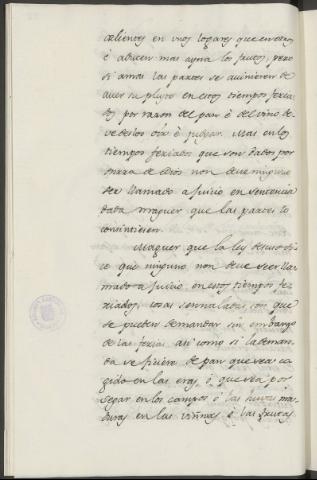 calientes en vnos logares que en otros
è aducen mas ayna los frutos, pero
si amas las partes se auinieren de
auer su pleyto en estos tiempos feria
dos por razon del pan è del vino de-
ve des los oir è judgar. Mas en los
tiempos feriados que son dados por
honrra de Dios non deue ninguno
ser llamado a juicio en sentencia
dada maguer que las partes lo
consintiesen.
Maguer que la ley de suso di-
ce que ninguno non deue seer lla-
mado a juicio en estos tiempos fe-
riados, cosas sennaladas son que
se pueden demandar sin embargo
de las ferias, asi como si la deman-
da se ficiere de pan que sea co-
gido en las eras, ó que sea por
segar en los campos ó las huvas ma-
duras en las vinnas ó las frutas